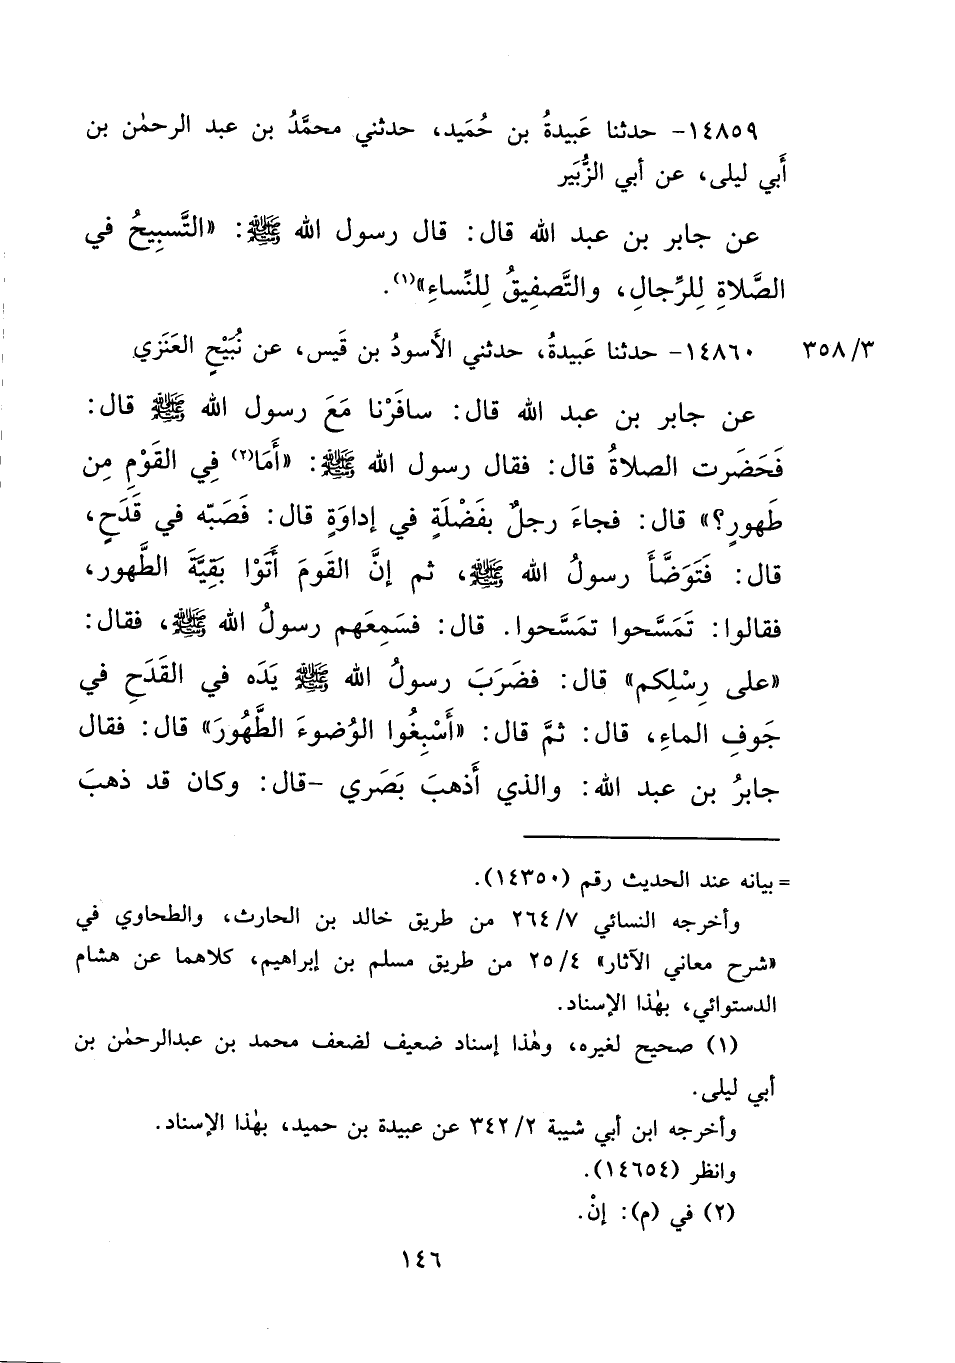 ١٤٨٥٩- حدثنا عَبِيدةُ بن حُمَيد، حدثني محمَّدُ بن عبد الرحمٰن بن
أَبي ليلى، عن أبي الزُّبَير
عن جابر بن عبد الله قال: قال رسول الله ﷺ: «التَّسبِيحُ في
الصَّلاةِ لِلرِّجالِ، والتَّصفِيقُ لِلنِّساءِ»(١).
١٤٨٦٠- حدثنا عَبِيدةُ، حدثني الأَسودُ بن قَيس، عن نُبَيْحٍ العَنَزي ٣٥٨/٣
عن جابر بن عبد الله قال: سافَرْنا مَعَ رسول الله ﷺ قال:
فَحَضَرت الصلاةُ قال: فقال رسول الله ﷺ: «أَمَا(٢) فِي القَوْمِ مِن
طَهورٍ؟» قال: فجاءَ رجلٌ بفَضْلَةٍ في إداوَةٍ قال: فَصَبّه في قَدَحٍ،
قال: فَتَوَضَّأَ رسولُ الله ﷺ، ثم إنَّ القومَ أَتَوْا بَقِيَّةَ الطَّهور،
فقالوا: تَمَسَّحوا تمَسَّحوا. قال: فسَمِعَهم رسولُ الله ﷺ، فقال:
«على رِسْلِكم» قال: فضَرَبَ رسولُ الله ﷺ يَدَه في القَدَحِ في
جَوفِ الماءِ، قال: ثمَّ قال: «أَسْبِغُوا الوُضوءَ الطَّهُورَ» قال: فقال
جابرُ بن عبد الله: والذي أَذهبَ بَصَري -قال: وكان قد ذهبَ
= بيانه عند الحديث رقم (١٤٣٥٠).
وأخرجه النسائي ٢٦٤/٧ من طريق خالد بن الحارث، والطحاوي في
«شرح معاني الآثار» ٢٥/٤ من طريق مسلم بن إبراهيم، كلاهما عن هشام
الدستوائي، بهٰذا الإسناد.
(١) صحيح لغيره، وهٰذا إسناد ضعيف لضعف محمد بن عبدالرحمٰن بن
أبي ليلى.
وأخرجه ابن أبي شيبة ٣٤٢/٢ عن عبيدة بن حميد، بهٰذا الإسناد.
وانظر (١٤٦٥٤).
(٢) في (م): إنْ.
١٤٦